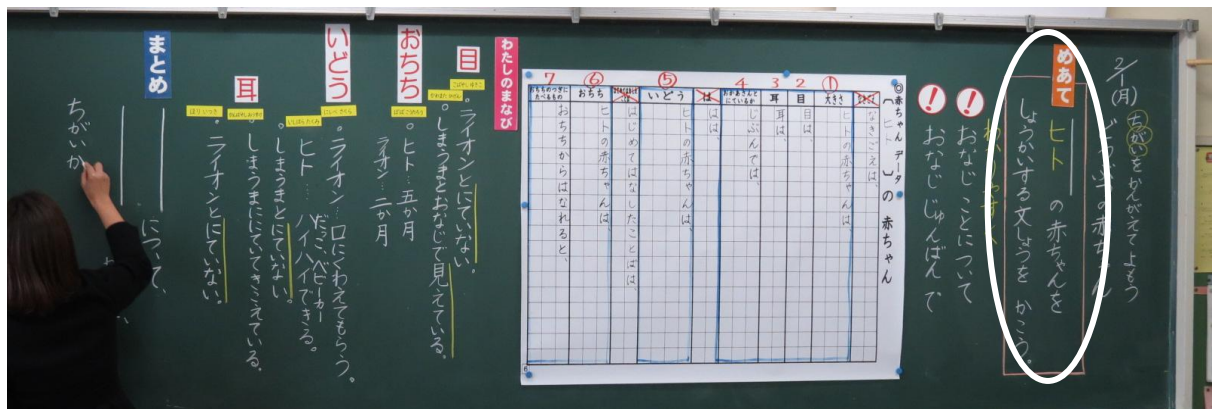 2/1(月)
ちがいをかんがえてよもう
どうぶつの赤ちゃん
めあて
ヒト の赤ちゃんを
しょうかいする文しょうを かこう。
!
おなじことについて
!
おなじじゅんばんで
◎赤ちゃん データ
〔ヒト〕の 赤ちゃん
なきごえは、
① 大きさ
ヒトの赤ちゃんは、
2 目
目は、
3 耳
耳は、
4 おかあさんとにているか
じぶんでは、
は
はは、
⑤ いどう
ヒトの赤ちゃんは、
はじめてはなしたことばは、
⑥ おちち
ヒトの赤ちゃんは、
7 おちちのつぎにたべるもの
おちちからはなれると、
わたしのまなび
目
。ライオンとにていない。
。しまうまとおなじで見えている。
おちち
。ヒト…五か月
ライオン…二か月
いどう
。ライオン…口にくわえてもらう。
ヒト…だっこ、ベビーカー
ハイハイできる。
。しまうまとにていない。
耳
。しまうまににていてきこえている。
。ライオンとにていない。
まとめ
について、
ちがいが